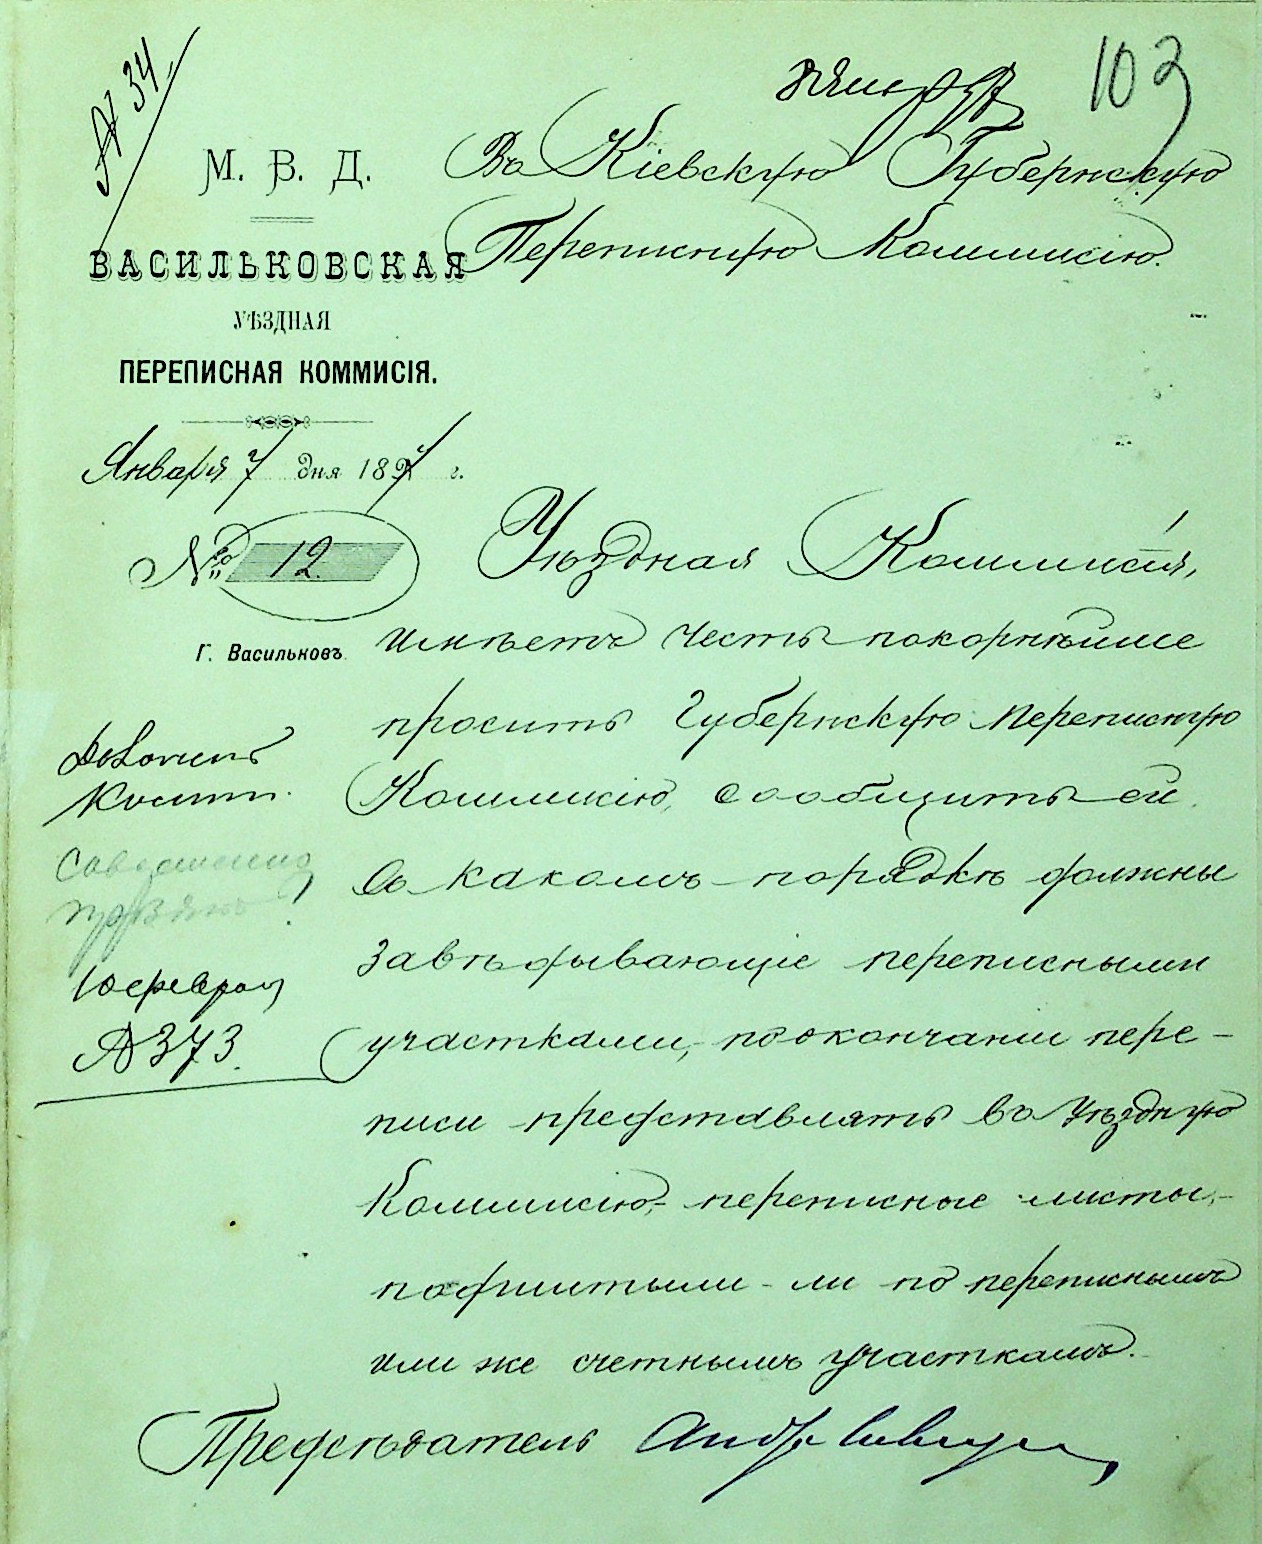 № 34
103
М. В. Д.
ВАСИЛЬКОВСКАЯ
УѢЗДНАЯ
ПЕРЕПИСНАЯ КОММИСІЯ.
Января 7 дня 1897 г.
№ 12
Г. Васильковъ.
Въ Кіевскую Губернскую
Переписную Коммисію.
Уѣздная Коммисія,
имѣетъ честь покорнѣйше
просить Губернскую переписную
Коммисію, сообщить ей
въ какомъ порядкѣ должны
завѣдывающіе переписными
участками, по окончаніи пере-
писи представлять въ Уѣздную
Коммисію, переписные листы,-
подшитыми-ли по переписнымъ
или же счетнымъ участкамъ.
Предсѣдатель
10 февраля
№ 373.